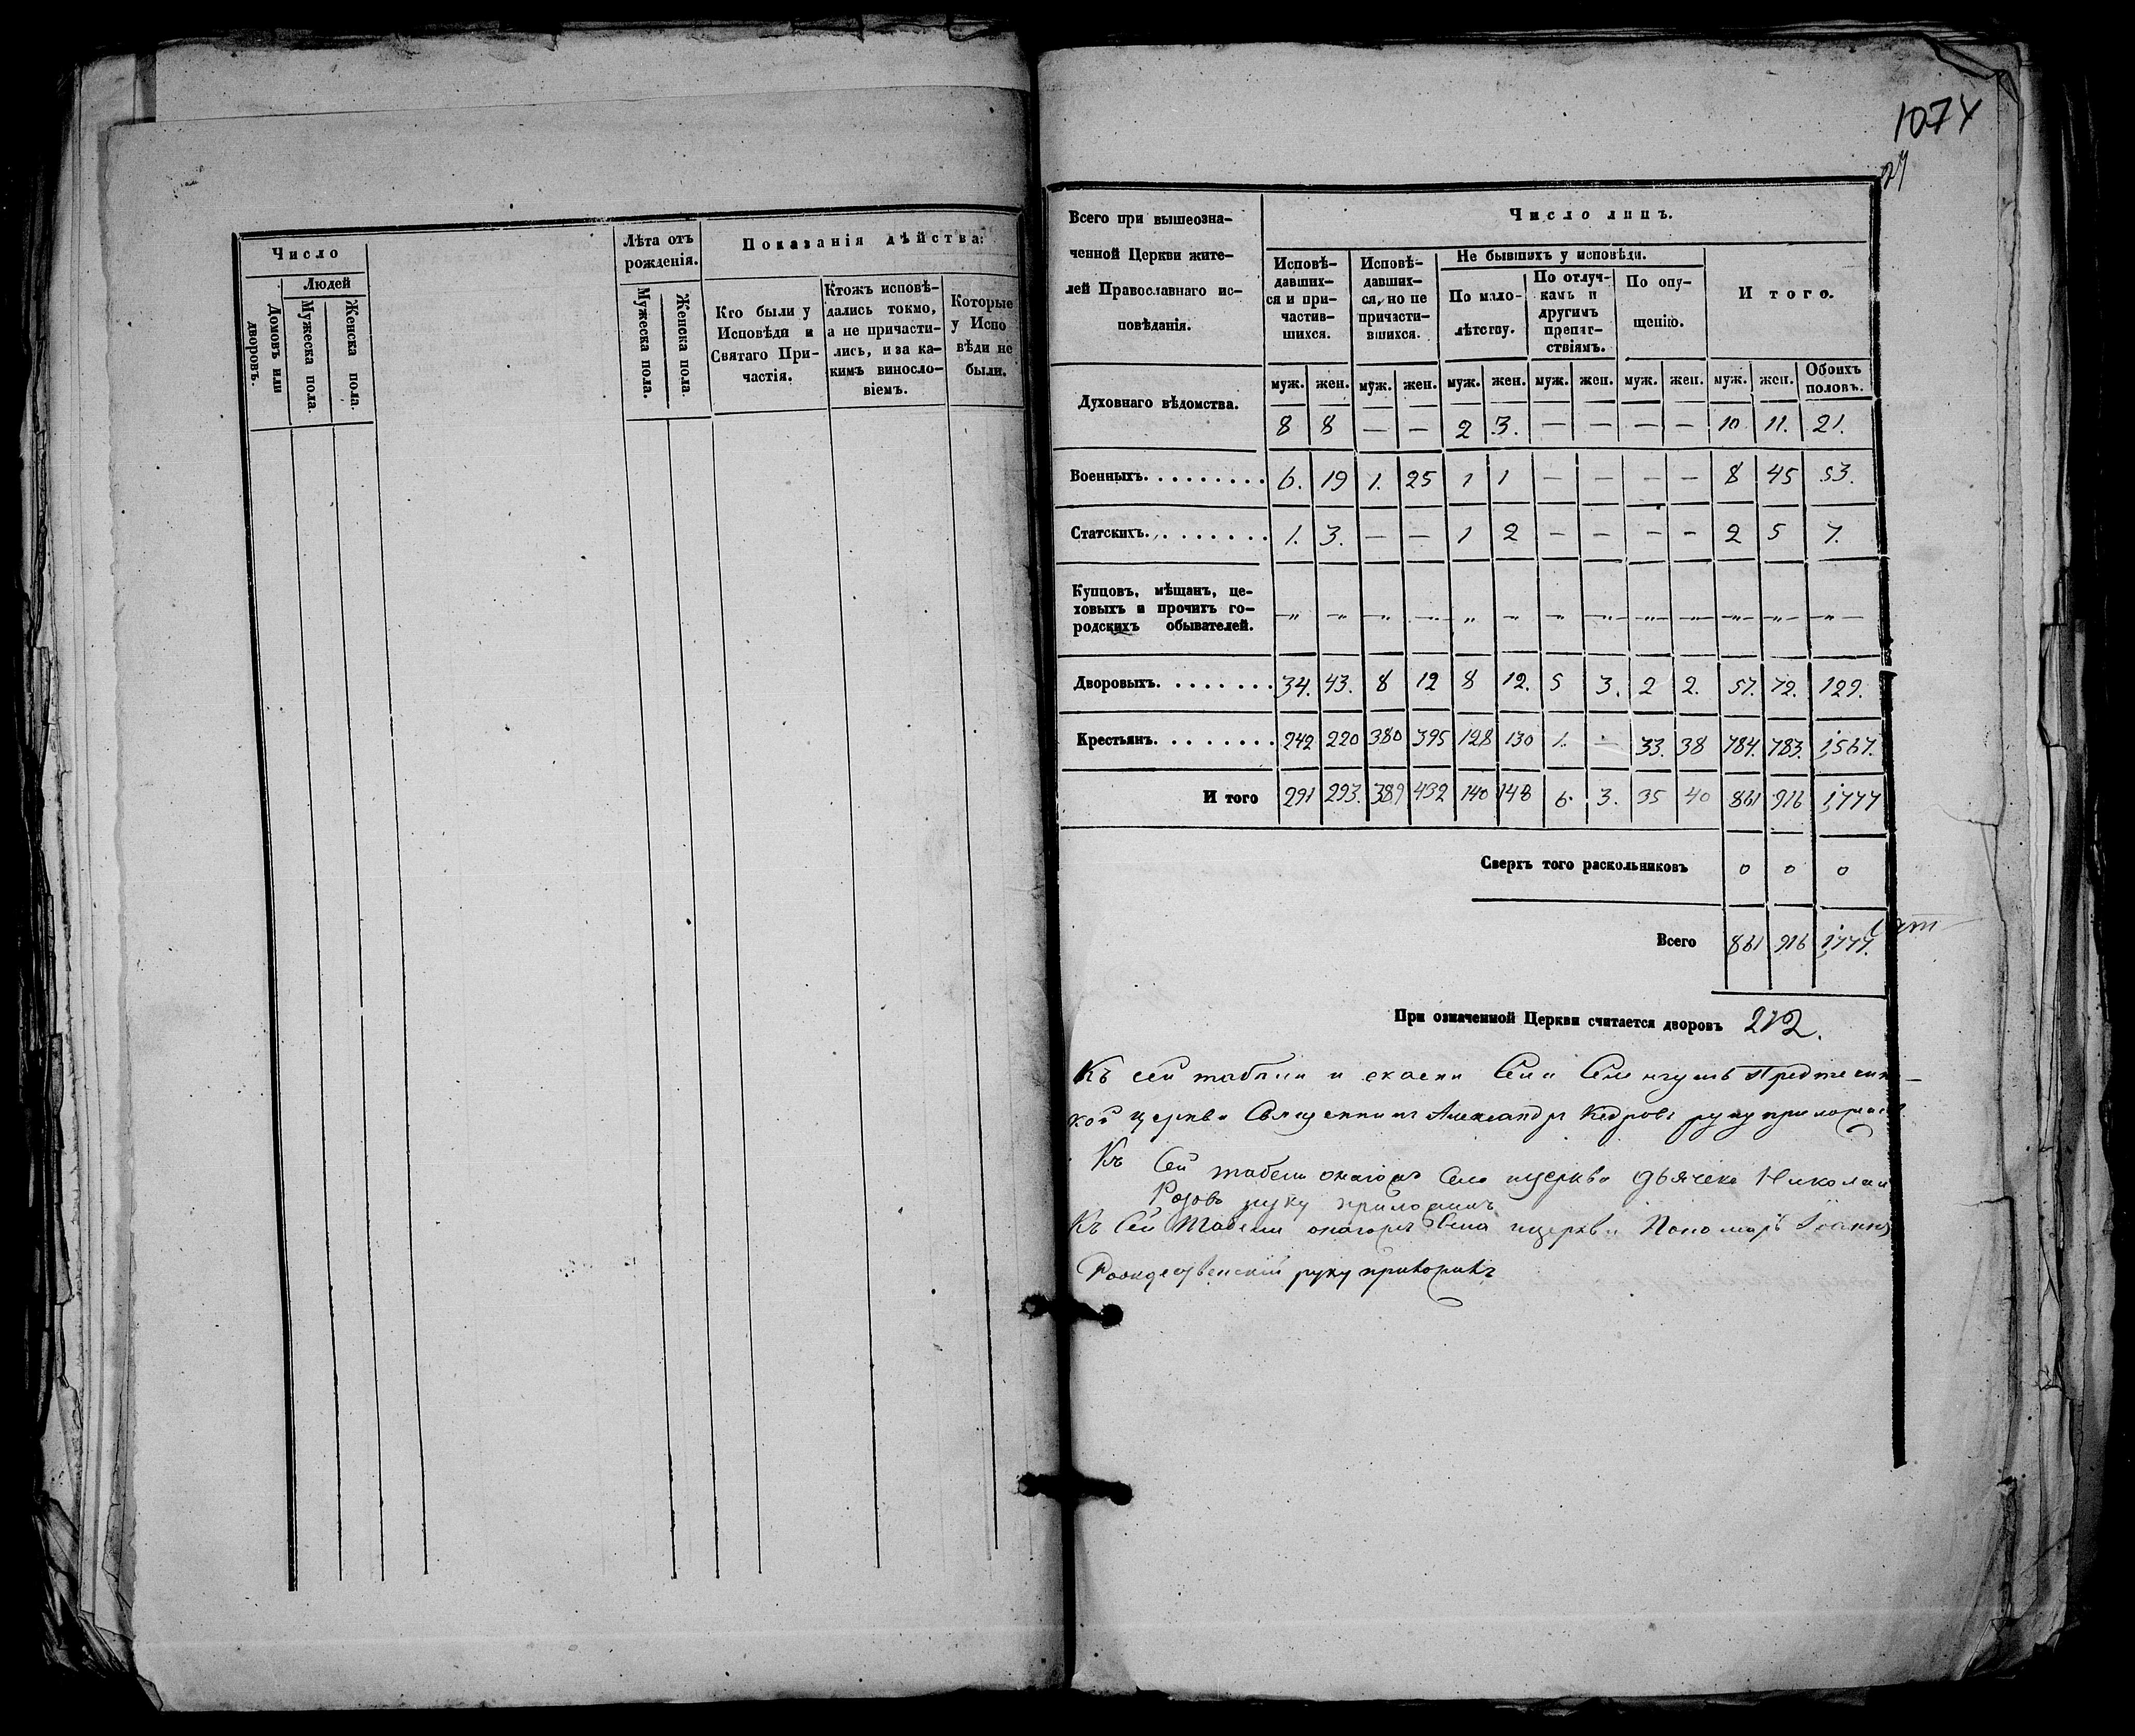 Число
Людей
Домовъ или дворовъ.
Мужеска пола.
Женска пола.
Лѣта отъ рожденія.
Мужеска пола.
Женска пола.
Показанія дѣйства:
Кто были у Исповѣди и Святаго Причастія.
Ктожъ исповѣдались токмо, а не причастились, и за какимъ винословіемъ.
Которые у Исповѣди не были.
1074
Всего при вышеозна-
ченной Церкви жите-
лей Православнаго ис-
повѣданія.
Число лицъ.
Исповѣ-
давших-
ся и при-
частив-
шихся.
Исповѣ-
давших-
ся, но не
причасти-
вшихся.
Не бывшихъ у исповѣди.
По мало-
лѣтству.
По отлуч-
камъ и
другимъ
препят-
ствіямъ.
По опу-
щенію.
И того.
муж. жен. муж. жен. муж. жен. муж. жен. муж. жен. муж. жен. Обоихъ половъ.
Духовнаго вѣдомства. 8 8 — — 2 3. — — — — 10 11. 21.
Военныхъ......... 6. 19 1. 25 1 1 — — — — 8 45 53.
Статскихъ........ 1. 3. — — 1 2 — — — — 2 5 7.
Купцовъ, мѣщанъ, це-
ховыхъ и прочихъ го-
родскихъ обывателей.
Дворовыхъ........ 34. 43. 8 12 8 12. 5 3. 2 2. 57. 72. 129.
Крестьянъ........ 242 220 380 395 128 130 1. — 33. 38 784. 783. 1,567.
И того 291 293. 389 432 140 148 6. 3. 35 40 861 916 1,777
Сверхъ того раскольниковъ 0 0 0
Всего 861 916 1,777.
При означенной Церкви считается дворовъ 212.
Къ сей табели и Села Предтечин-
ской церкви Священникъ Александръ Кедровъ руку приложилъ
Къ Сей табели Села церкви дьячекъ Николай
Розовъ руку приложилъ
Къ Сей Табели Села церкви Пономарь Іоаннъ
Рождественскій руку приложилъ